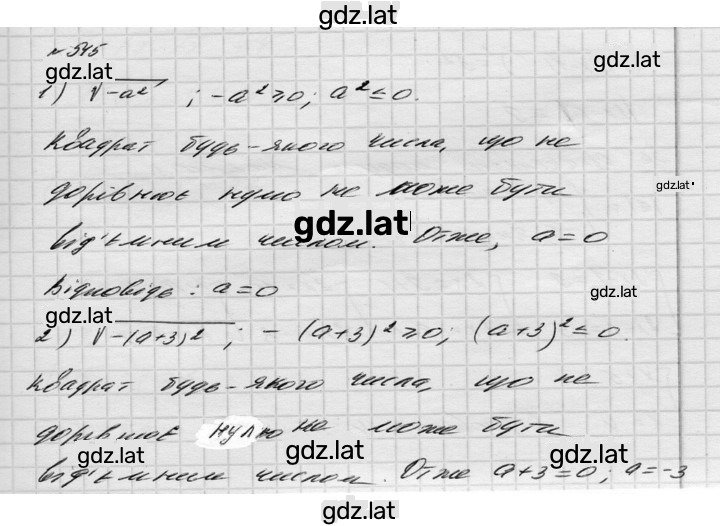 gdz.lat
№ 545
gdz.lat
gdz.lat
1) √-a² ; -a² ≥ 0; a² ≤ 0.
Квадрат будь-якого числа, що не
дорівнює нулю не може бути
gdz.lat
gdz.lat
від'ємним числом. Отже, a = 0
Відповідь: a = 0
gdz.lat
gdz.lat
2) √-(a+3)² ; -(a+3)² ≥ 0; (a+3)² ≤ 0.
gdz.lat
Квадрат будь-якого числа, що не
дорівнює нулю не може бути
gdz.lat
gdz.lat
gdz.lat
від'ємним числом. Отже a+3=0; a=-3
gdz.lat